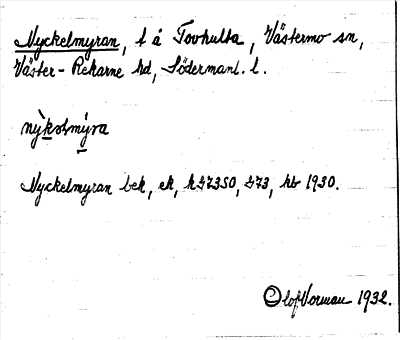 Nyckelmyran, t å Tovhulta, Västermo sn,
Väster-Rekarne hd, Södermanl. l.
nỳkəlmýra
Nyckelmyran bek, ek, hS7350, 273, hb 1930.
Olof Vorman 1932.